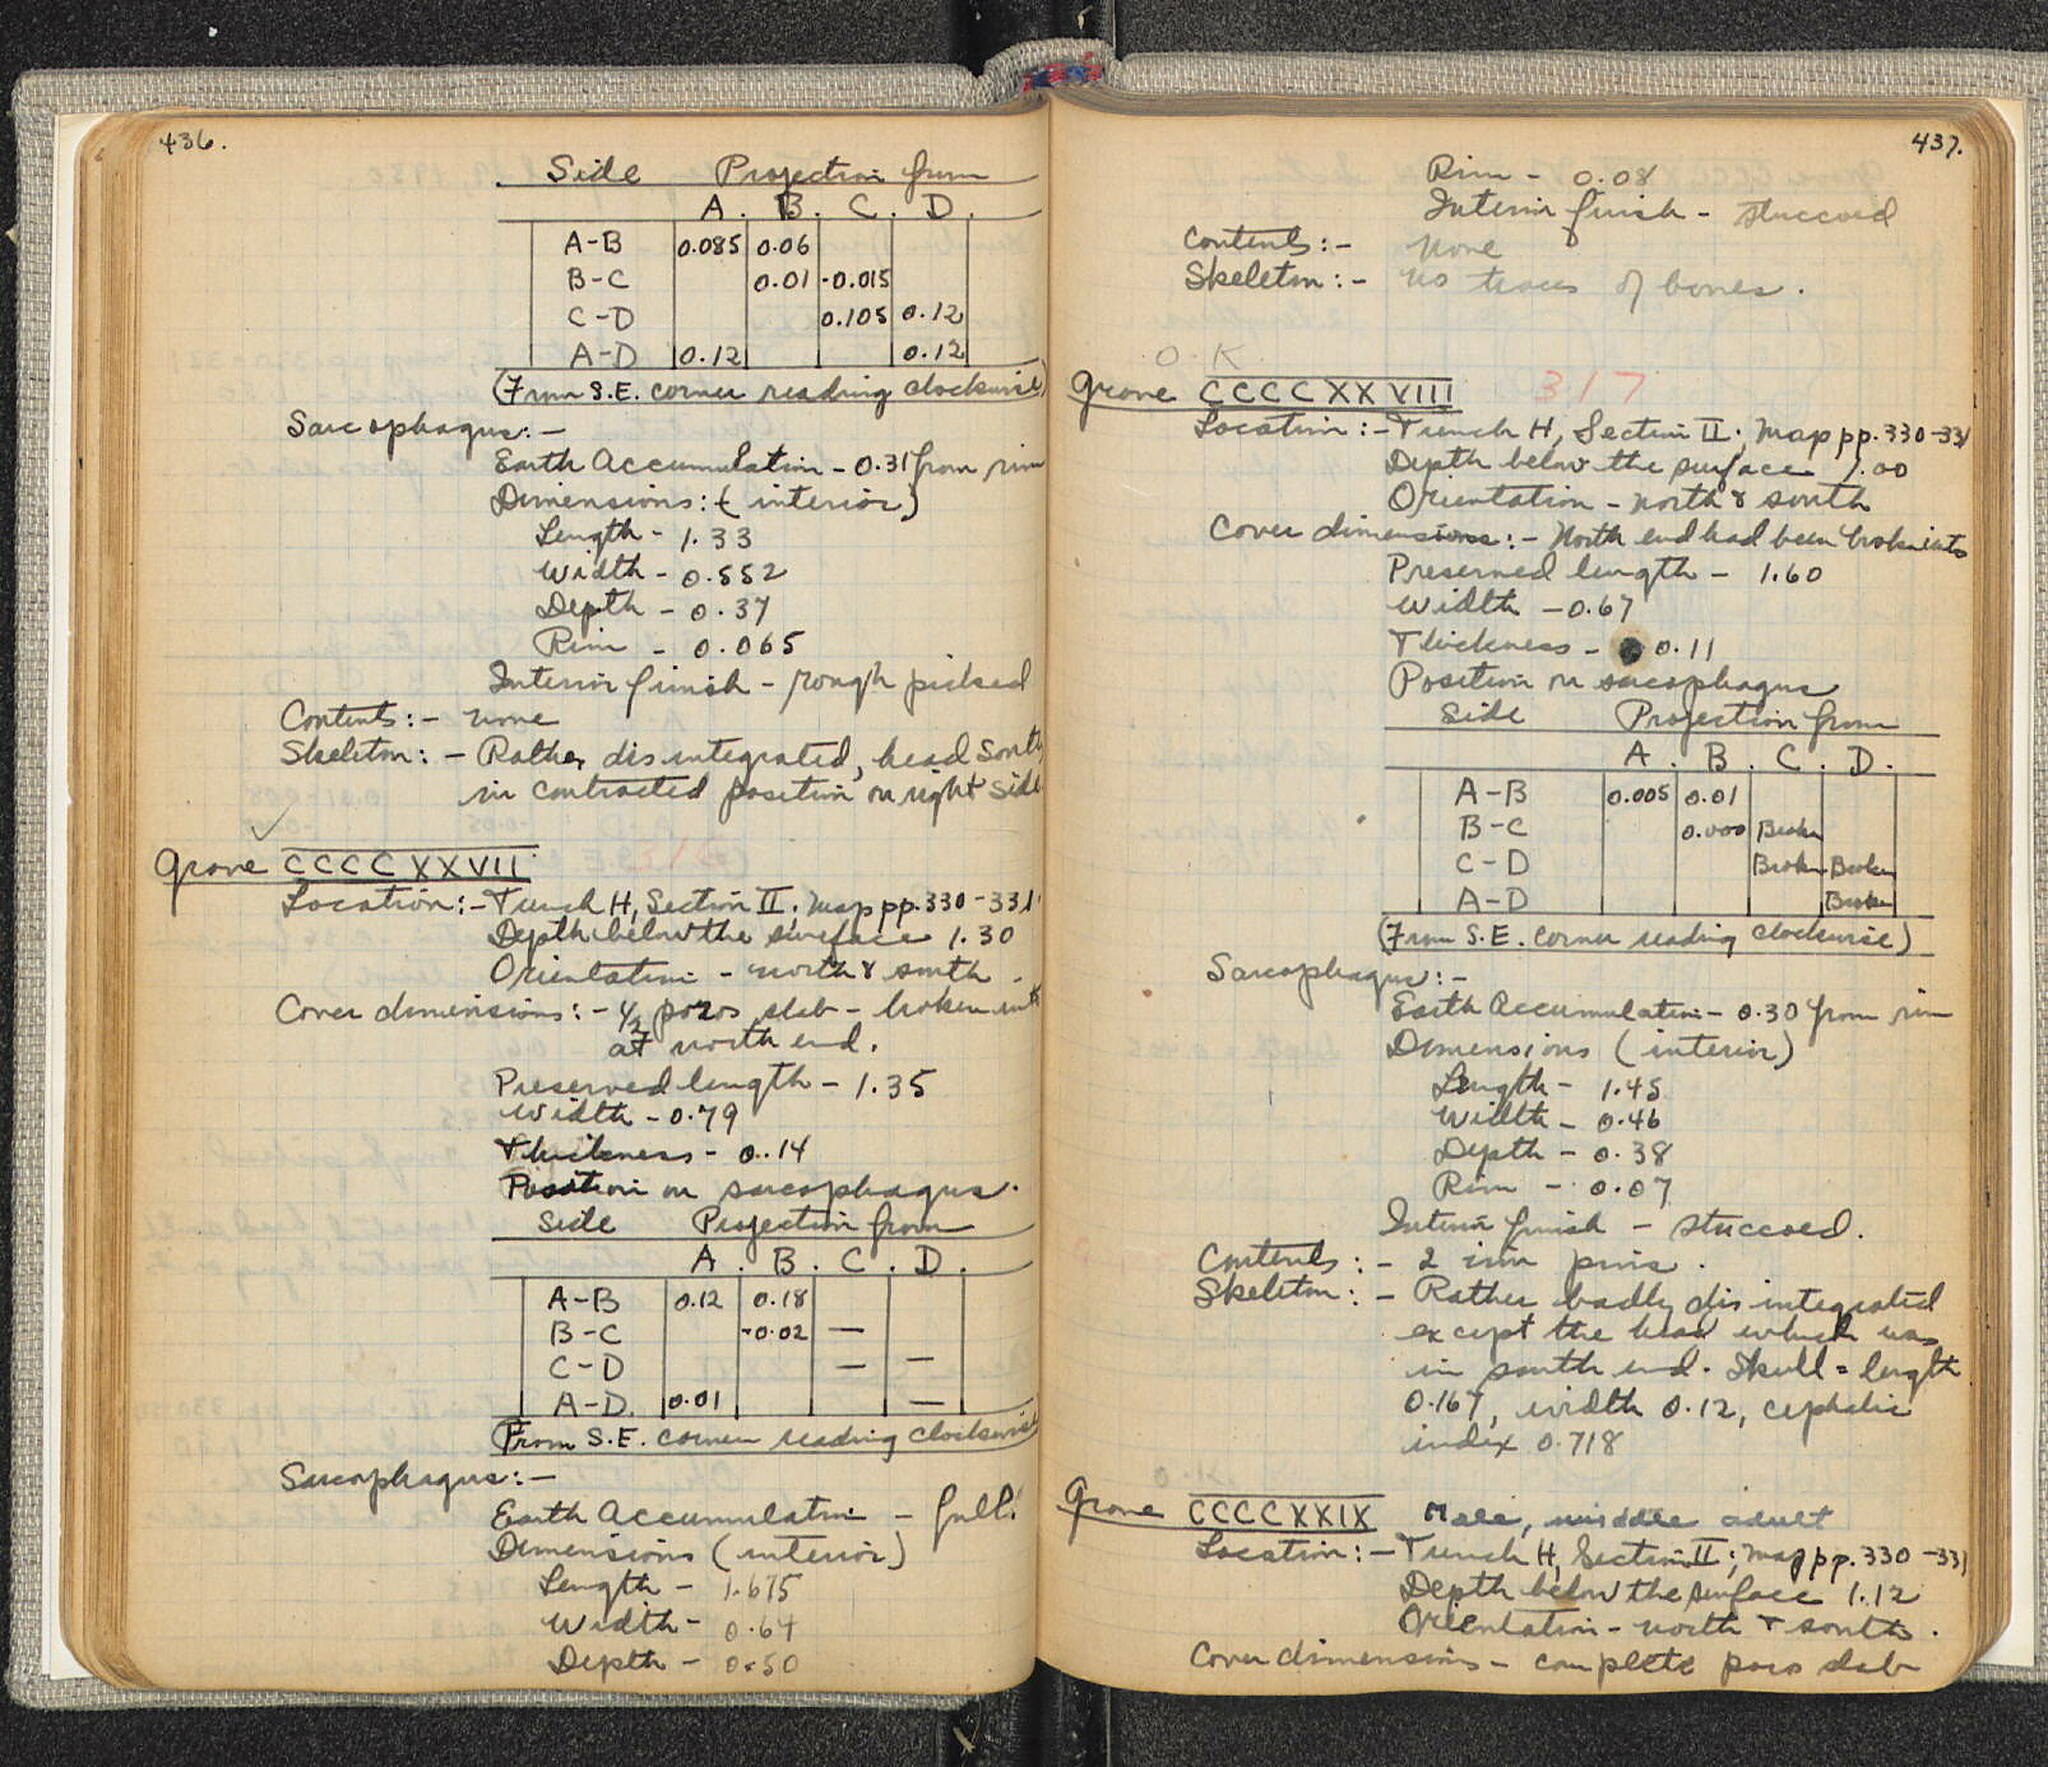 436.
Side Projection from
A. B. C. D.
A-B 0.085 0.06
B-C 0.01 -0.015
C-D 0.105 0.12
A-D 0.12 0.12
(From S.E. corner reading clockwise)
Sarcophagus:-
Earth Accumulation - 0.31 from rim
Dimensions: (interior)
Length - 1.33
Width - 0.552
Depth - 0.37
Rim - 0.065
Interior finish - rough picked
Contents:- none
Skeleton:- Rather disintegrated, head South
in contracted position on right side
Grave CCCCXXVII
Location:- Trench H, Section II; Map pp. 330-331
Depth below the surface 1.30
Orientation - north & south
Cover dimensions:- 1/2 poros slab - broken into
at north end.
Preserved length - 1.35
Width - 0.79
Thickness - 0.14
Position on sarcophagus.
Side Projection from
A. B. C. D.
A-B 0.12 0.18
B-C -0.02 —
C-D — —
A-D. 0.01 —
(From S.E. corner reading clockwise
Sarcophagus:-
Earth Accumulation - full.
Dimensions (interior)
Length - 1.675
Width - 0.64
Depth - 0.50
437.
Rim - 0.08
Interior finish - stuccoed
Contents:- None
Skeleton:- no traces of bones.
O.K
Grave CCCCXXVIII 317
Location:- Trench H, Section II; Map pp. 330-331
Depth below the surface 1.00
Orientation - north & south
Cover dimensions:- North end had been broken into
Preserved length - 1.60
Width - 0.67
Thickness - 0.11
Position on sarcophagus
Side Projection from
A. B. C. D.
A-B 0.005 0.01
B-C 0.000 Broken
C-D Broken Broken
A-D Broken
(From S.E. corner reading clockwise)
Sarcophagus:-
Earth Accumulation - 0.30 from rim
Dimensions (interior)
Length - 1.45
Width - 0.46
Depth - 0.38
Rim - 0.07
Interior finish - stuccoed.
Contents:- 2 iron pins.
Skeleton:- Rather badly disintegrated
except the head which was
in south end. Skull = length
0.167, width 0.12, cephalic
index 0.718
Grave CCCCXXIX Male, middle adult
Location:- Trench H, Section II; Map pp. 330-331
Depth below the surface 1.12
Orientation - north & south.
Cover dimensions - complete poros slab